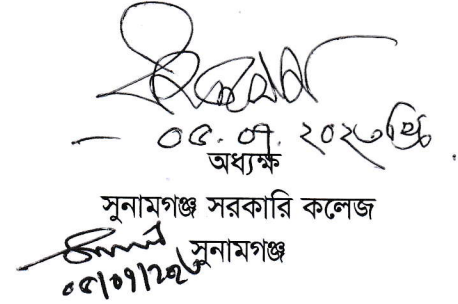 ০৫.০৭.২০২৩খ্রিঃ
অধ্যক্ষ
সুনামগঞ্জ সরকারি কলেজ
সুনামগঞ্জ
০৫/০৭/২০২৩